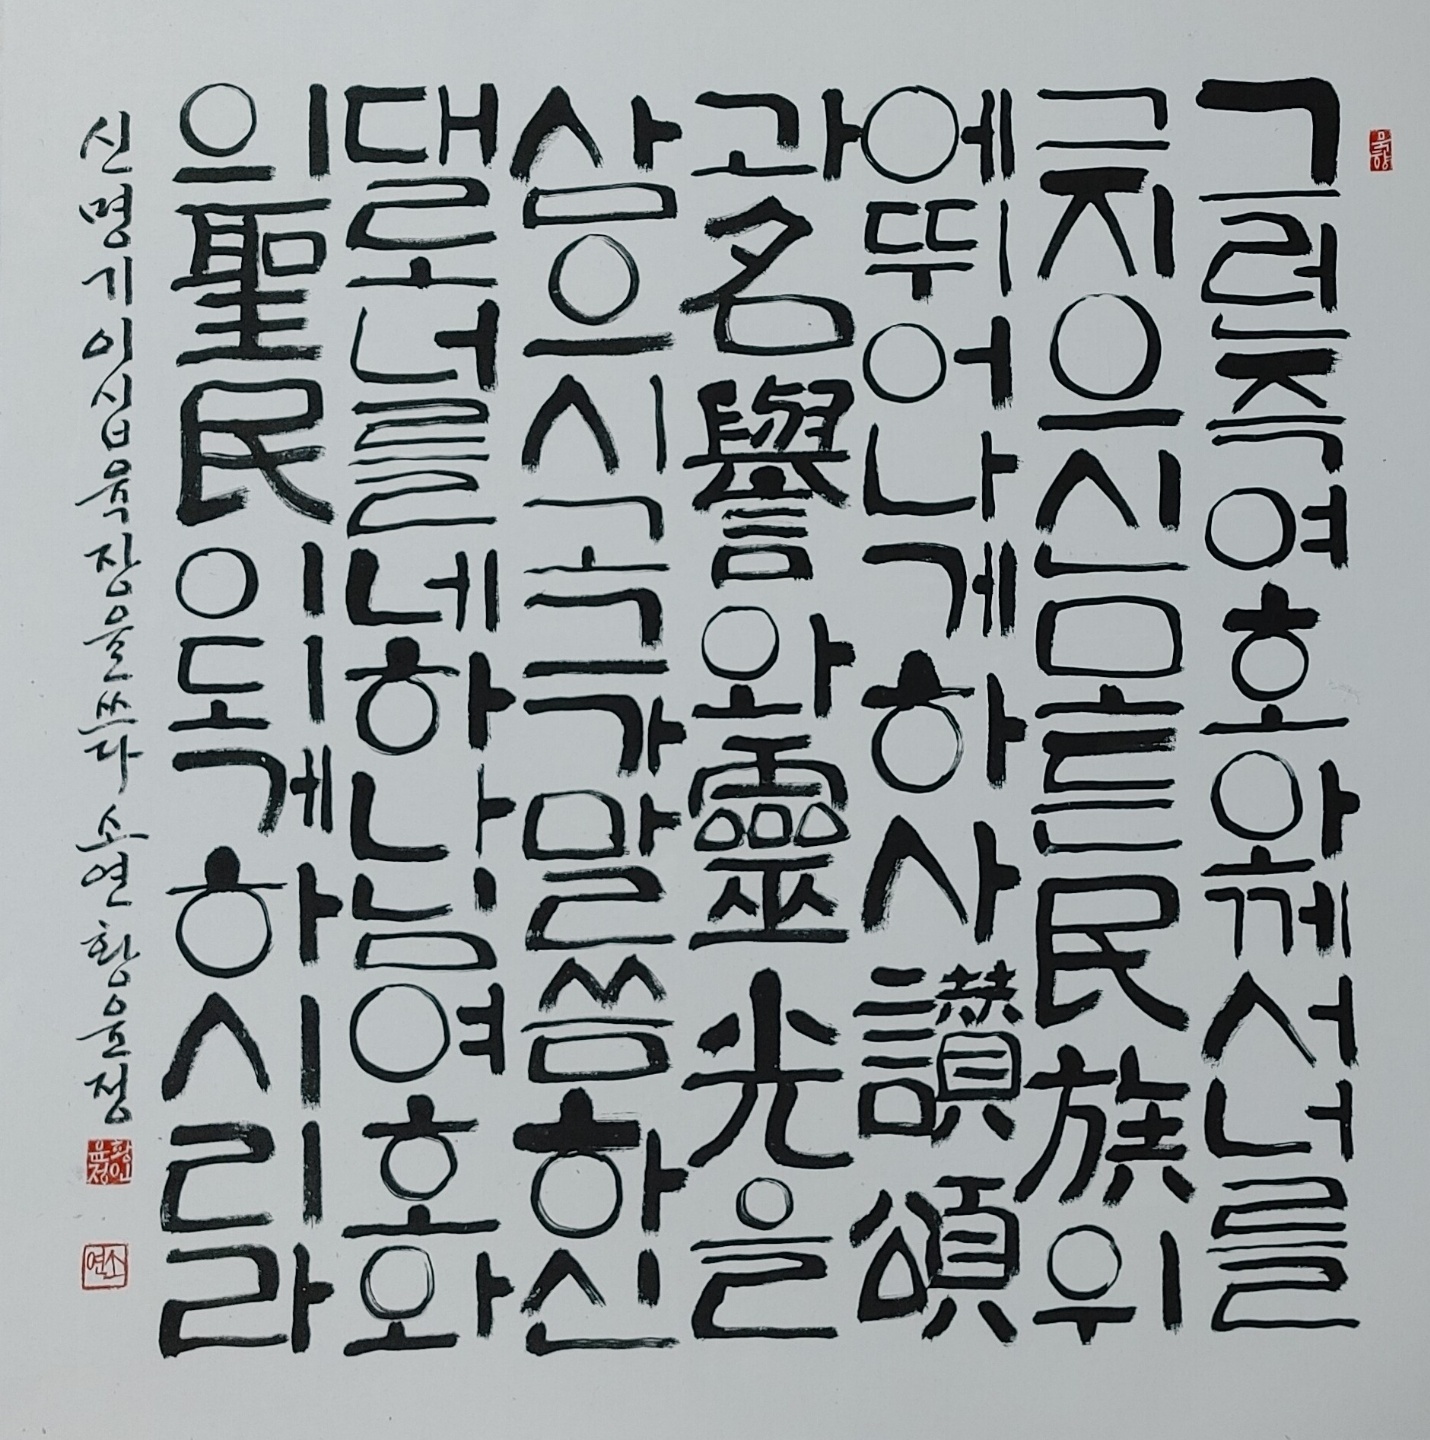 묵향
그런즉여호와께서너를
그지으신모든民族위
에뛰어나게하사讚頌
과名譽와靈光을
삼으시고그가말씀하신
대로너를네하나님여호와
의聖民이되게하시리라
신명기이십육장을쓰다 소연황윤정
황인윤정
소연